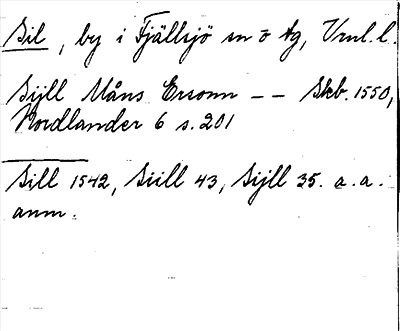 Sil, by i Fjällsjö sn o tg, Vrnl. l.
Sijll Måns Ersonn — — Skb. 1550,
Nordlander 6 s. 201
Sill 1542, Siill 43, Sijll 35. a. a.
anm.